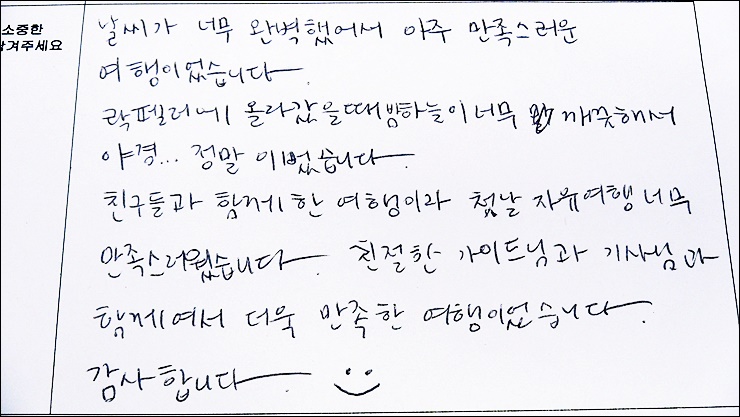 소중한
남겨주세요
날씨가 너무 완벽했어서 아주 만족스러운
여행이었습니다.
락펠러에 올라갔을때 밤하늘이 너무 깨끗해서
야경... 정말 이뻤습니다.
친구들과 함께 한 여행이라 첫날 자유여행 너무
만족스러웠습니다. 친절한 가이드님과 기사님과
함께여서 더욱 만족한 여행이었습니다.
감사합니다. :)